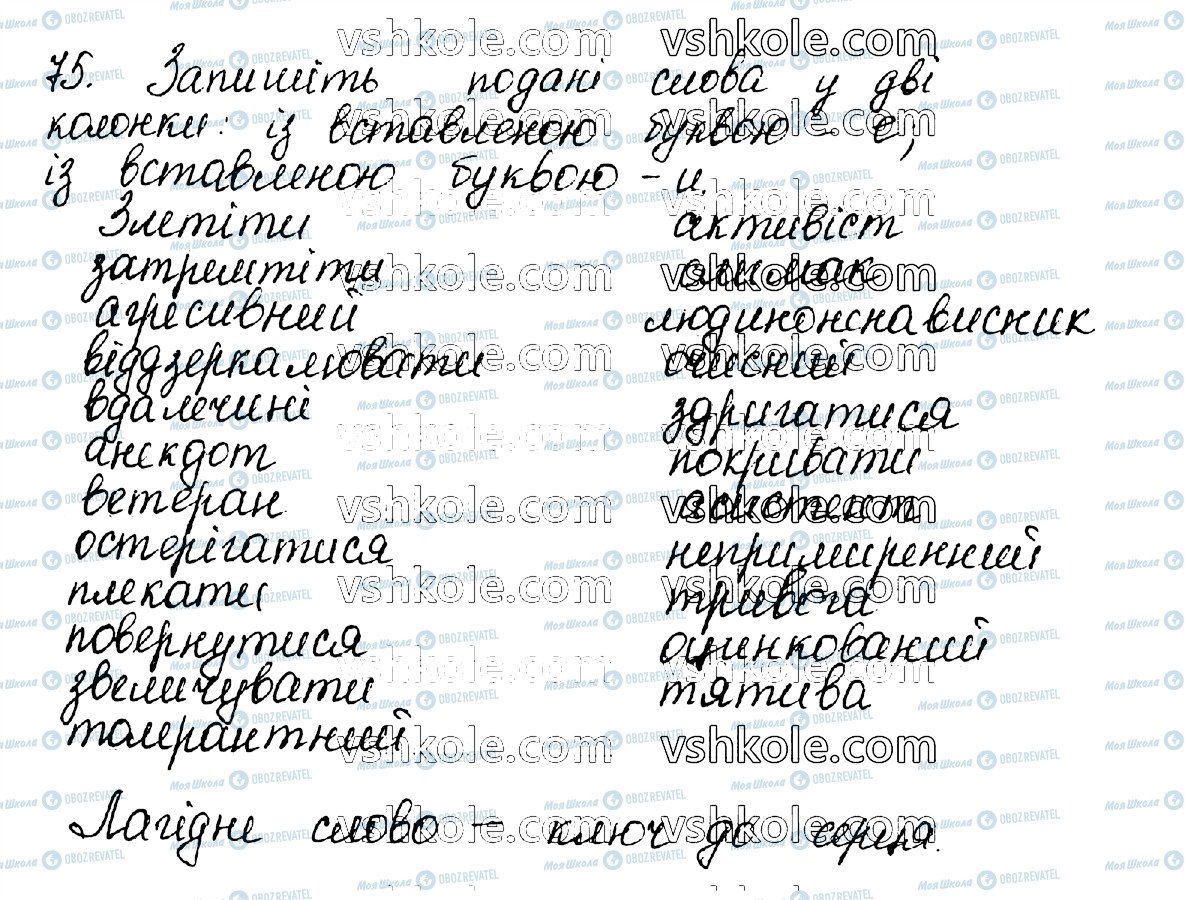 75. Запишіть подані слова у дві
колонки: із вставленою буквою - е;
із вставленою буквою - и.
Злетіти активіст
затремтіти
агресивний людинонснависник
віддзеркалювати очисний
вдалечині здригатися
анекдот покривати
ветеран
остерігатися непримиренний
плекати тривога
повернутися оцинкований
звеличувати тятива
толерантний
Лагідне слово - ключ до серця.
vshkole.com
Моя Школа OBOZREVATEL